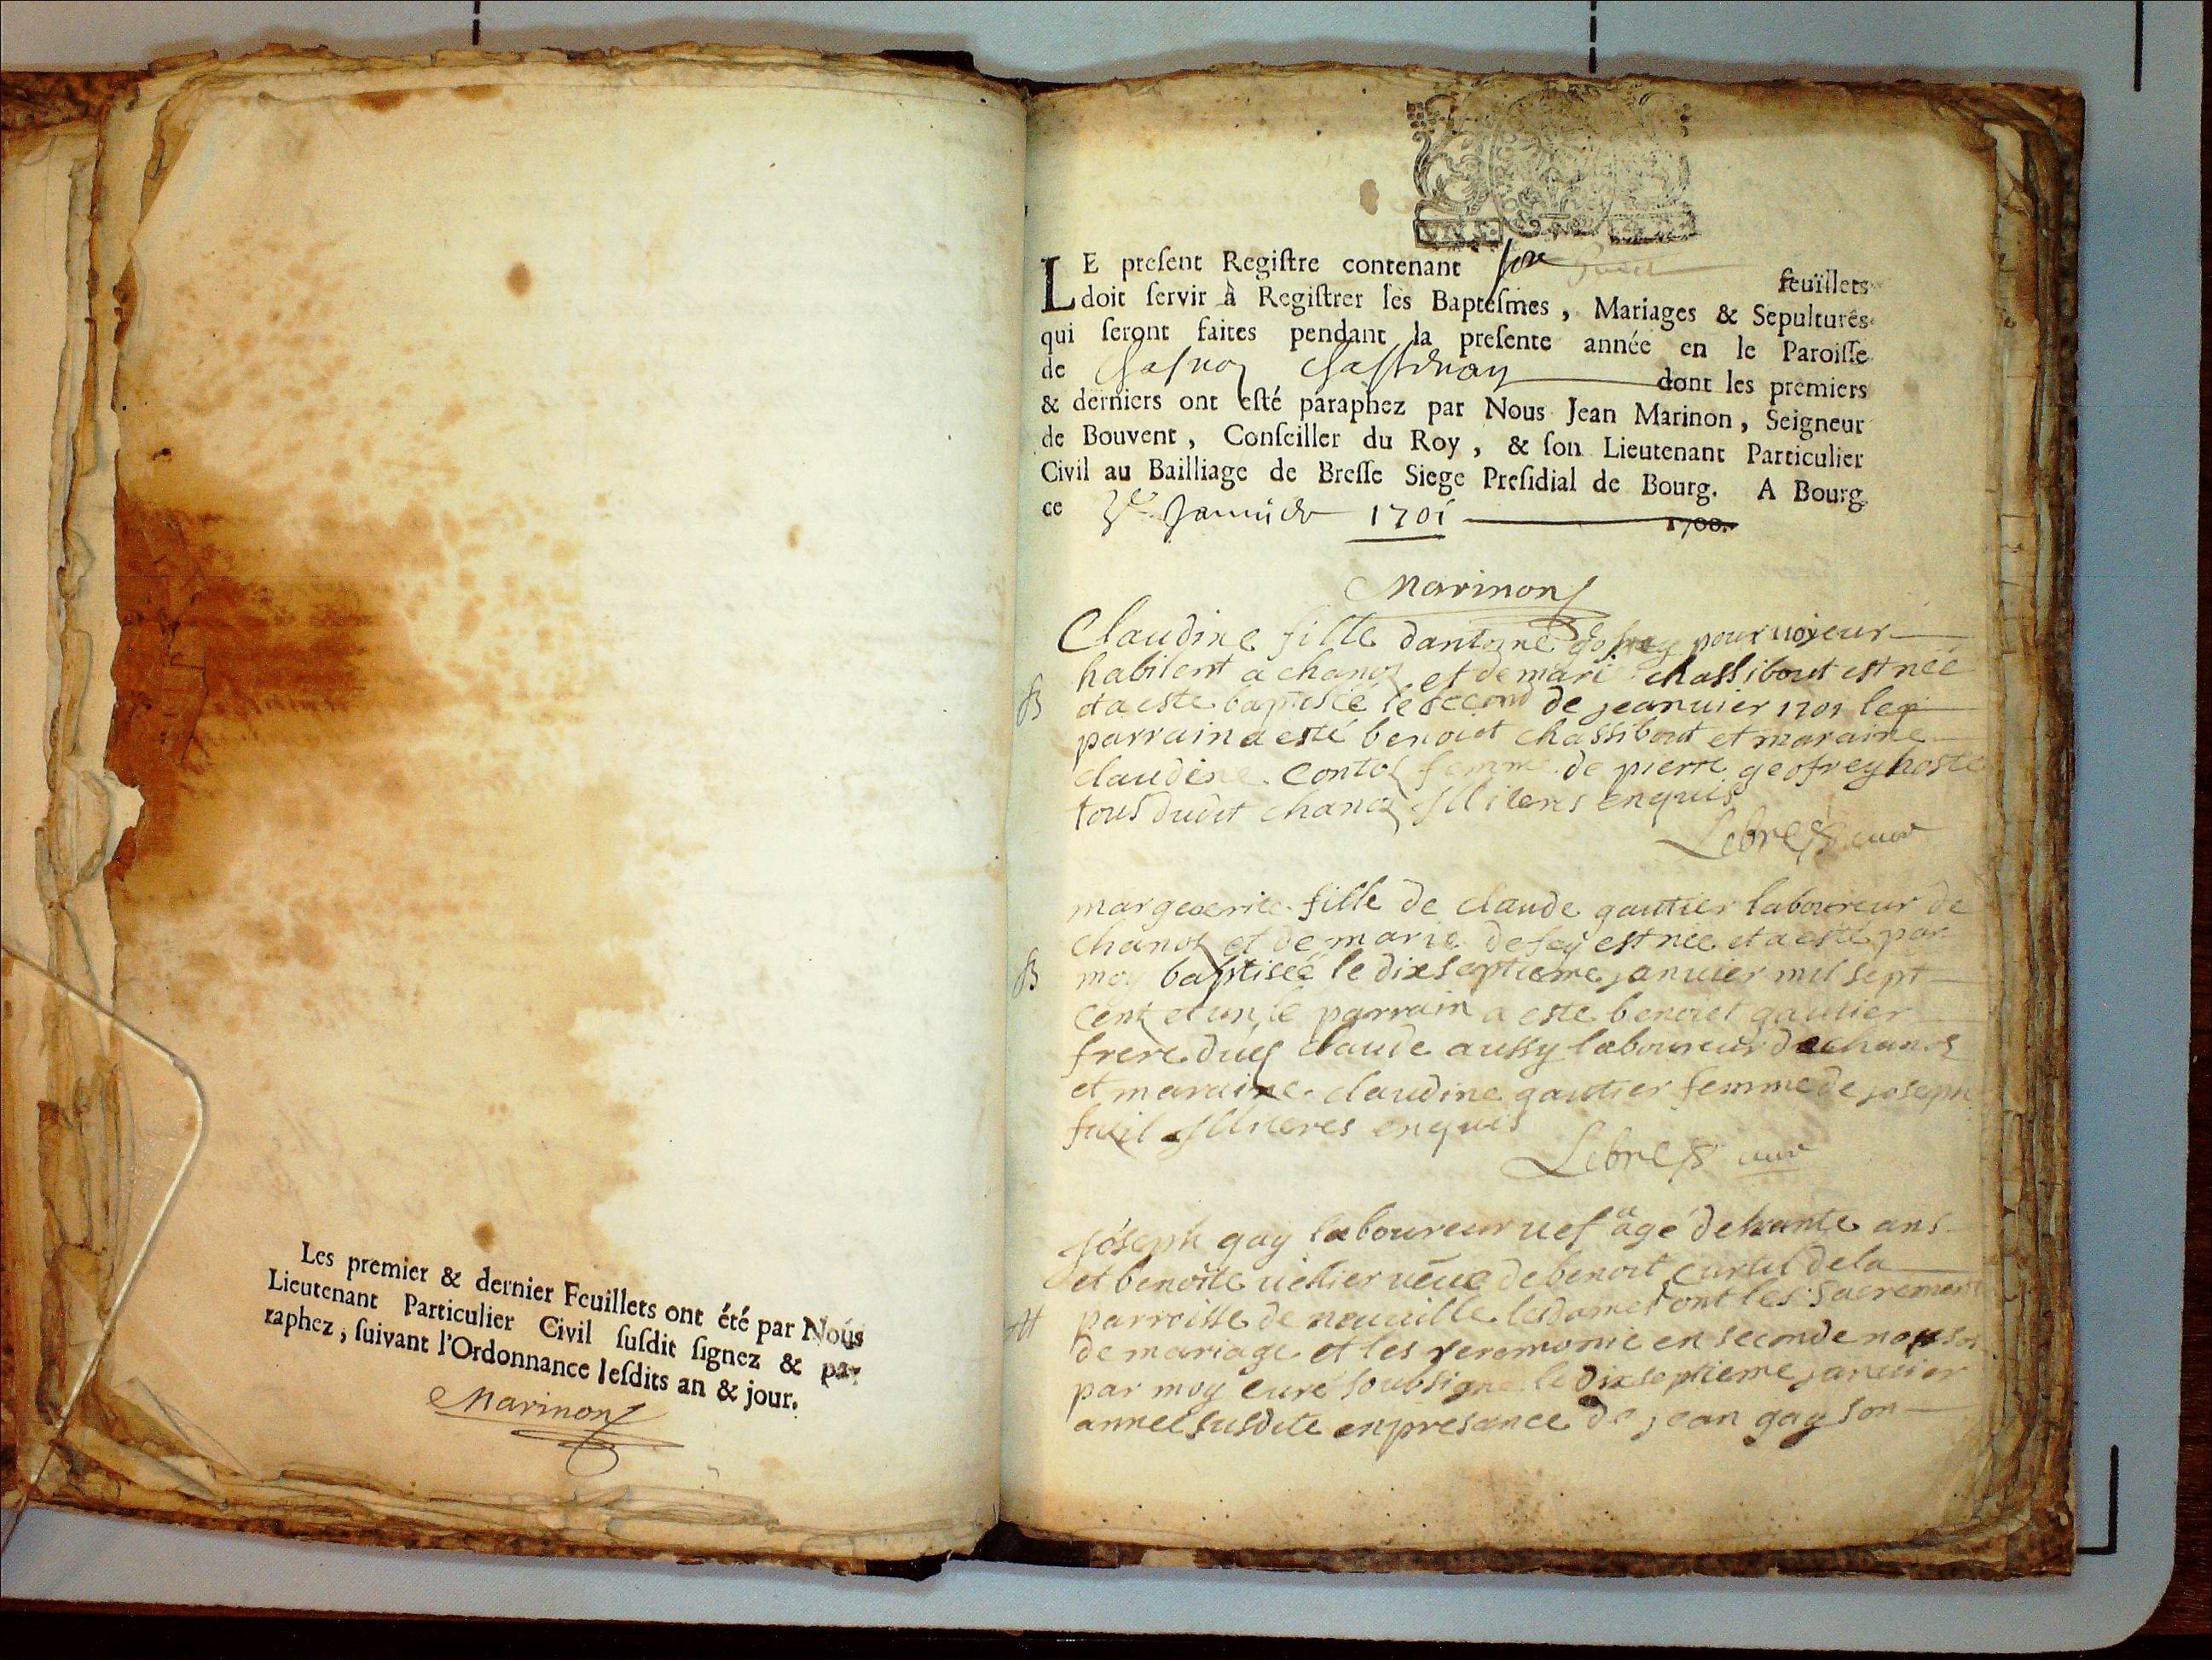 Les premier & dernier Feuillets ont été par Nous
Lieutenant Particulier Civil susdit signez & pa-
raphez, suivant l'Ordonnance lesdits an & jour.
Marinon
LE present Registre contenant feuillets
doit servir à Registrer les Baptesmes, Mariages & Sepultures
qui seront faites pendant la presente année en le Paroisse
de Chasnoz Chastenay dont les premiers
& derniers ont esté paraphez par Nous Jean Marinon, Seigneur
de Bouvent, Conseiller du Roy, & son Lieutenant Particulier
Civil au Bailliage de Bresse Siege Presidial de Bourg. A Bourg
ce Janvier 1701 1700.
Marinon
Claudine fille dantoine pourvoyeur
habitent a chanoz et de mari chassibout est née
B et a esté baptisée le second de jeanvier 1701 le
parrain a esté benoict chassibout et maraine
claudine Contoz femme de pierre geofrey hoste
tous dudit chanoz illiterés enquis
Lebre curé
margueritte fille de claude gautier laboureur de
chanoz et de marie defay est née et a esté par
B moy baptiseé le dixseptieme janvier mil sept
cent et un le parrain a esté benoict gautier
frere dud claude aussy laboureur de chanoz
et maraine claudine gautier femme de joseph
illiteres enquis
Lebre curé
joseph gay laboureur vef agé de trente ans
et benoite vieve de benoit curtil de la
parroisse de neuville ont les sacrement
de mariage et les seremonie en seconde
par moy curé soubsigné le dixseptieme janvier
anneé susdite en presance de jean gay son